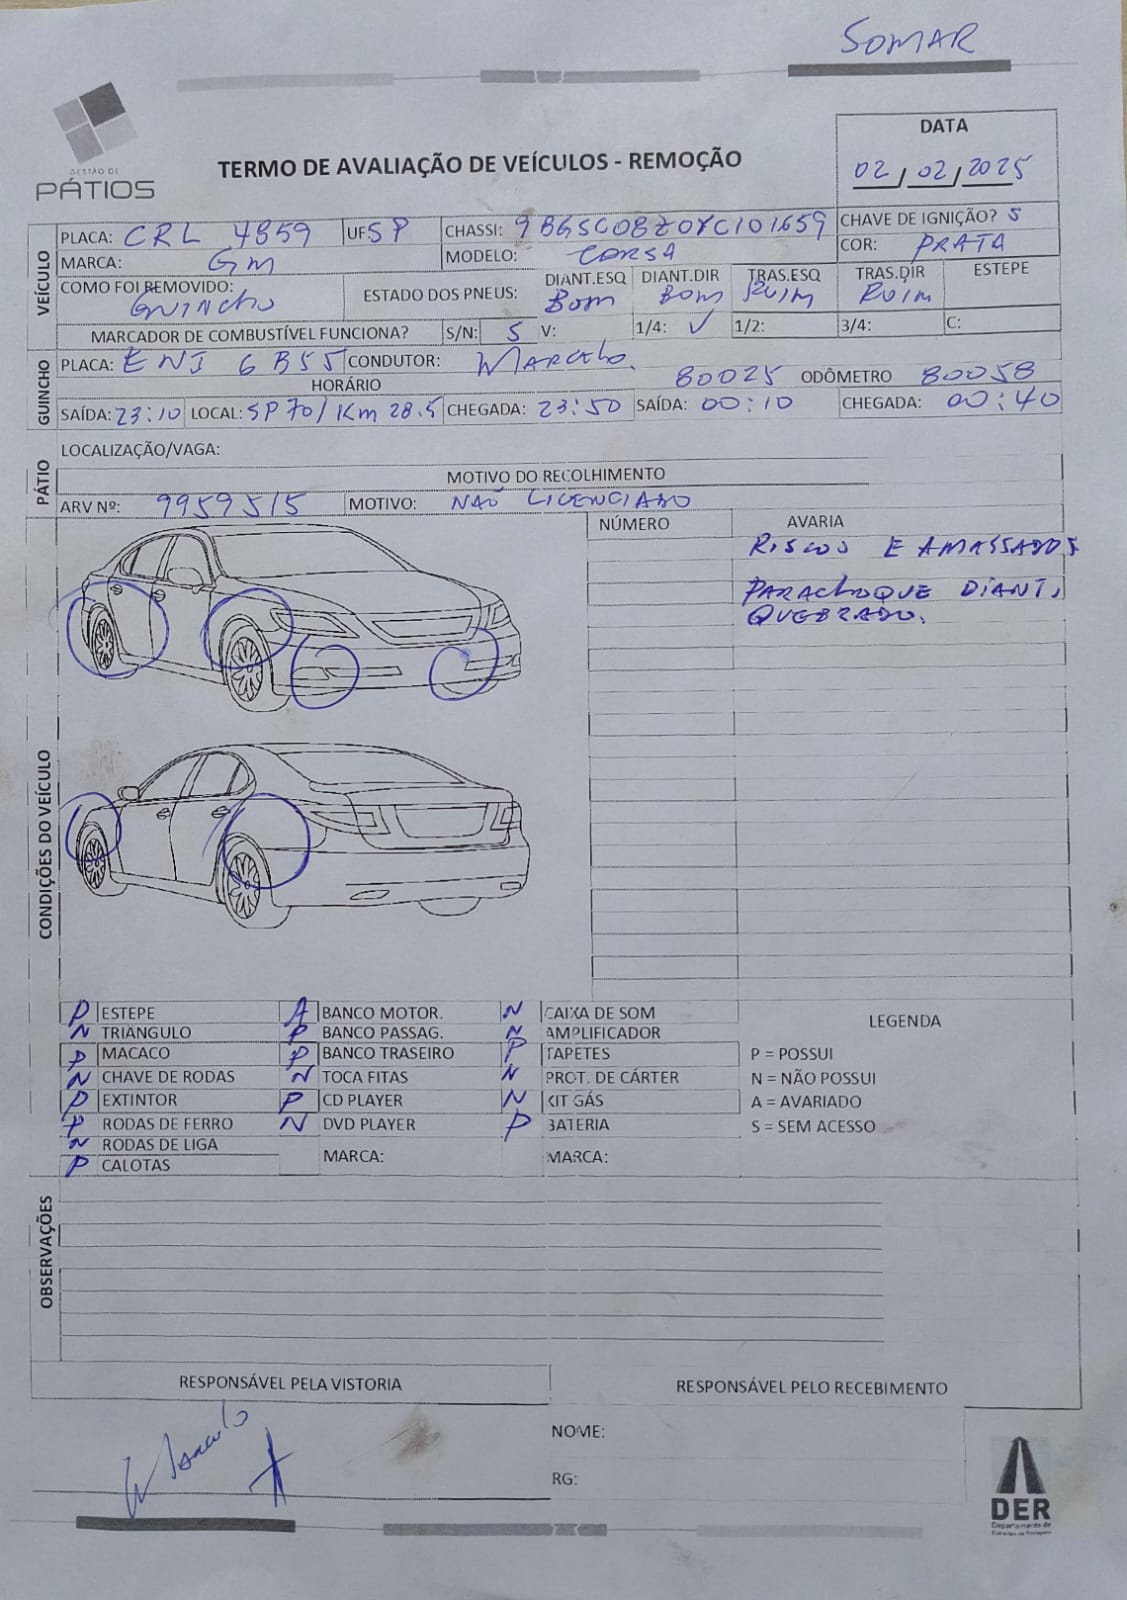 SOMAR
GESTÃO DE
PÁTIOS
TERMO DE AVALIAÇÃO DE VEÍCULOS - REMOÇÃO
DATA
02/02/2025
VEÍCULO
PLACA: CRL 4859 UF SP CHASSI: 9BGSC08Z0YC101659 CHAVE DE IGNIÇÃO? S
MARCA: GM MODELO: CORSA COR: PRATA
COMO FOI REMOVIDO: GUINCHO ESTADO DOS PNEUS: DIANT.ESQ DIANT.DIR TRAS.ESQ TRAS.DIR ESTEPE
BOM BOM RUIM RUIM
MARCADOR DE COMBUSTÍVEL FUNCIONA? S/N: S V: 1/4: ✓ 1/2: 3/4: C:
GUINCHO
PLACA: ENI 6B55 CONDUTOR: MARCELO.
HORÁRIO 80025 ODÔMETRO 80058
SAÍDA: 23:10 LOCAL: SP70/Km 28.5 CHEGADA: 23:50 SAÍDA: 00:10 CHEGADA: 00:40
PÁTIO
LOCALIZAÇÃO/VAGA:
MOTIVO DO RECOLHIMENTO
ARV Nº: 9959515 MOTIVO: NAO LICENCIADO
CONDIÇÕES DO VEÍCULO
NÚMERO AVARIA
RISCOS E AMASSADOS
PARACHOQUE DIANT.
QUEBRADO.
P ESTEPE A BANCO MOTOR. N CAIXA DE SOM LEGENDA
N TRIÂNGULO P BANCO PASSAG. N AMPLIFICADOR
P MACACO P BANCO TRASEIRO P TAPETES P = POSSUI
N CHAVE DE RODAS N TOCA FITAS N PROT. DE CÁRTER N = NÃO POSSUI
P EXTINTOR P CD PLAYER N KIT GÁS A = AVARIADO
P RODAS DE FERRO N DVD PLAYER P BATERIA S = SEM ACESSO
N RODAS DE LIGA MARCA: MARCA:
P CALOTAS
OBSERVAÇÕES
RESPONSÁVEL PELA VISTORIA RESPONSÁVEL PELO RECEBIMENTO
Marcelo
NOME:
RG:
DER
Departamento de
Estradas de Rodagem